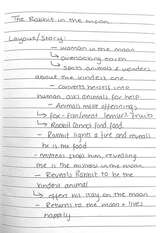 The Rabbit in the moon
Layout/Story:
- woman in the moon
↳ overlooking earth
↳ spots animals & wonders
about the kindest one
- converts herself into
human, asks animals for help
- Animals make offerings
↳ fox -
↳ Rabbit cannot find food
- Rabbit lights a fire and reveals
he is the food
- stops him, revealing
she is the in the moon
- Reveals Rabbit to be the
kindest animal
↳ offers his stay on the moon
- Returns to the moon & lives
happily